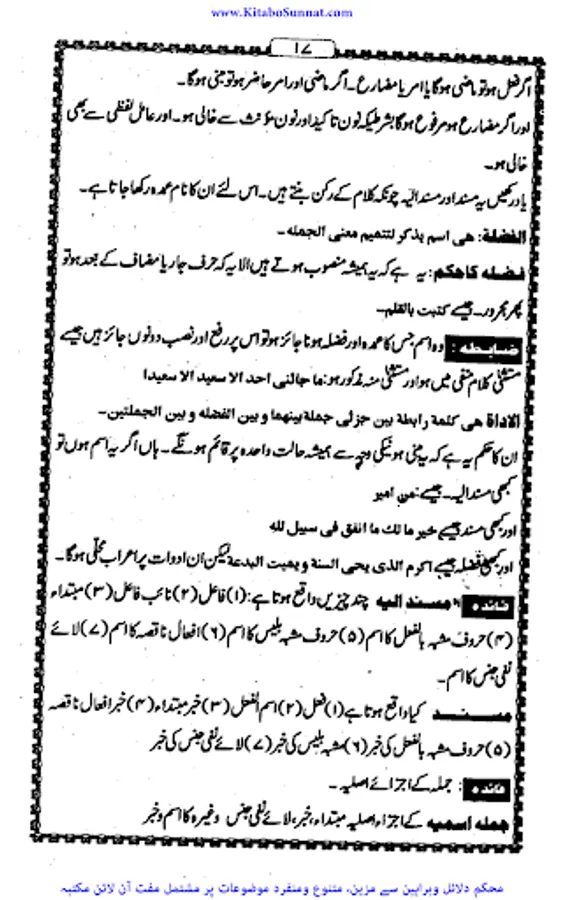 www.KitaboSunnat.com
۱۷
اگر فعل ہو تو ماضی ہوگا یا امر یا مضارع۔ اگر ماضی اور امر حاضر ہو تو مبنی ہوگا۔
اور اگر مضارع ہو مرفوع ہوگا بشرطیکہ نون تاکید اور نون مؤنث سے خالی ہو۔ اور عامل لفظی سے بھی
خالی ہو۔
یاد رکھیں یہ مسند اور مسند الیہ چونکہ کلام کے رکن بنتے ہیں۔ اس لئے ان کا نام عمدہ رکھا جاتا ہے۔
الفضلة: هی اسم یذکر لتتمیم معنی الجمله۔
فضله کا حکم: یہ ہے کہ یہ ہمیشہ منصوب ہوتے ہیں الا یہ کہ حرف جار یا مضاف کے بعد ہو تو
پھر مجرور۔ جیسے کتبت بالقلم۔
ضابطه: وہ اسم جس کا عمدہ اور فضلہ ہونا جائز ہو تو اس پر رفع اور نصب دونوں جائز ہیں جیسے
مستثنیٰ کلام منفی میں ہو اور مستثنیٰ منہ مذکور ہو: ما جالنی احد الا سعید الا سعیدا
الاداة هی کلمة رابطة بین جزلی جملة بینهما و بین الفضله و بین الجملتین۔
ان کا حکم یہ ہے کہ یہ مبنی ہونیکی وجہ سے ہمیشہ حالت واحدہ پر قائم ہونگے۔ ہاں اگر یہ اسم ہوں تو
کبھی مسند الیہ۔ جیسے: من امیر
اور کبھی مسند جیسے خیر مالك ما انفق فی سبیل لله
اور کبھی فضلہ جیسے اکرم الذی یحی السنة و یمیت البدعة لیکن ان ادوات پر اعراب محلی ہوگا۔
فائده: مسند الیه چند چیزیں واقع ہوتا ہے: (۱) فاعل (۲) نائب فاعل (۳) مبتداء
(۴) حروف مشبہ بالفعل کا اسم (۵) حروف مشبہ بلیس کا اسم (۶) افعال ناقصہ کا اسم (۷) لائے
نفی جنس کا اسم۔
مسند کیا واقع ہوتا ہے (۱) فعل (۲) اسم الفعل (۳) خبر مبتداء (۴) خبر افعال ناقصہ
(۵) حروف مشبہ بالفعل کی خبر (۶) مشبہ بلیس کی خبر (۷) لائے نفی جنس کی خبر
فائده: جملہ کے اجزائے اصلیہ۔
جمله اسمیه کے اجزاء اصلیہ مبتداء، خبر، لائے نفی جنس وغیرہ کا اسم و خبر
محکم دلائل وبراہین سے مزین، متنوع ومنفرد موضوعات پر مشتمل مفت آن لائن مکتبہ